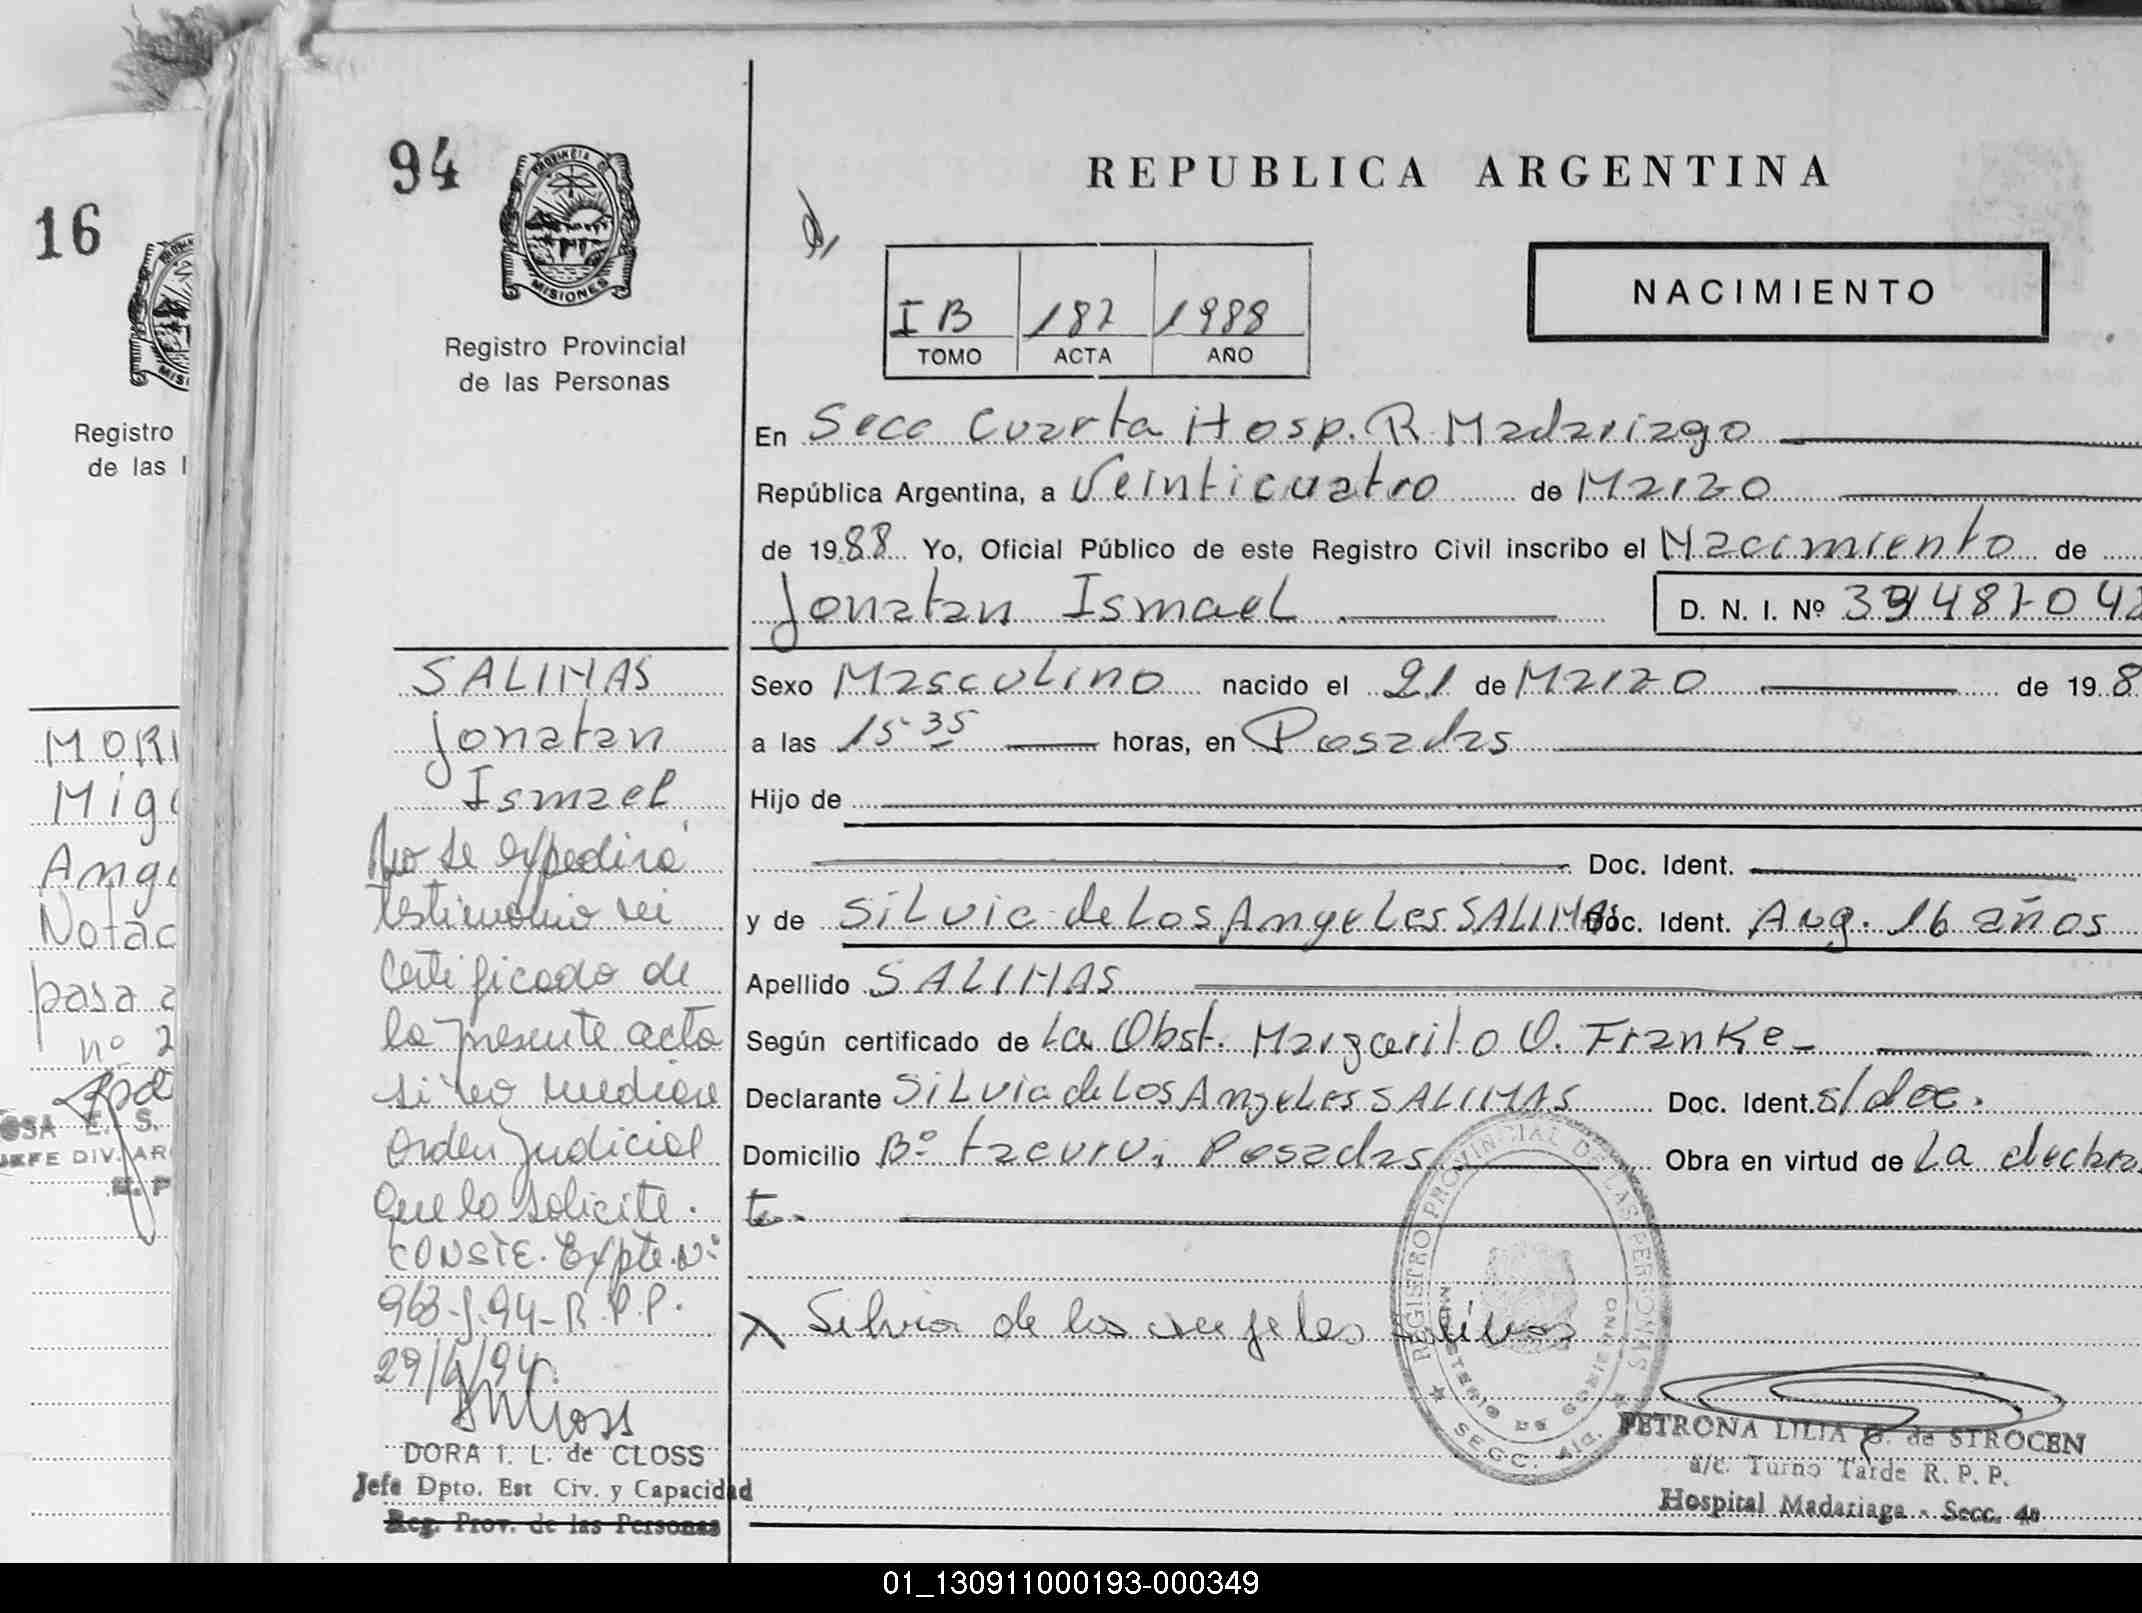 94
PROVINCIA DE
MISIONES
Registro Provincial
de las Personas
SALINAS
Jonatan
Ismael
No se expedirá
testimonio ni
certificado de
la presente acta
si no mediare
orden judicial
que lo solicite.
CONSTE. Expte. Nº
963-J.94-R.P.P.
29/6/94.
DORA I. L. de CLOSS
Jefe Dpto. Est Civ. y Capacidad
Reg. Prov. de las Personas
REPUBLICA ARGENTINA
I B 187 1988
TOMO ACTA AÑO
NACIMIENTO
En Secc Cuarta Hosp. R. Madariaga
República Argentina, a Veinticuatro de Marzo
de 1988 Yo, Oficial Público de este Registro Civil inscribo el Nacimiento de
Jonatan Ismael D. N. I. Nº
Sexo Masculino nacido el 21 de Marzo de 198
a las 15 35 horas, en Posadas
Hijo de
Doc. Ident.
y de Silvia de Los Angeles SALINAS Doc. Ident. Arg. 16 años
Apellido SALINAS
Según certificado de La Obst. Margarita O. Franke
Declarante Silvia de Los Angeles SALINAS Doc. Ident. s/doc.
Domicilio Bº Yacurui Posadas Obra en virtud de La declaran
te.
X Silvia de los angeles Salinas
REGISTRO PROVINCIAL DE LAS PERSONAS
MINISTERIO DE GOBIERNO
SECC. 4ta.
PETRONA LILIA G. de STROCEN
a/c. Turno Tarde R. P. P.
Hospital Madariaga - Secc. 4a
16
Registro
de las
MORI
Mig
Ang
Notac
pasa a
nº 2
OSA E. S.
JEFE DIV. AR
R. P
01_130911000193-000349